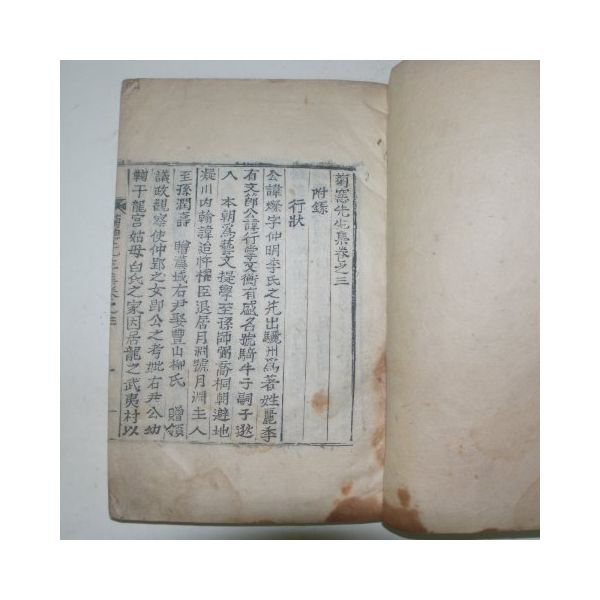 菊窓先生集卷之三
附錄
行狀
公諱燦字仲明李氏之先出驪州爲著姓麗季
有文節公諱行掌文衡有盛名號騎牛子嗣子逖
入 本朝爲藝文提學至孫師弼喬桐朝避地
凝川内翰諱迨將懼臣退居月淵號月淵主人
至孫潤壽 贈漢城右尹娶豐山柳氏 贈領
議政觀察使仲郢之女郎公之考妣右尹公幼
鞠于龍宮姑母白氏之家因居龍之武夷村以